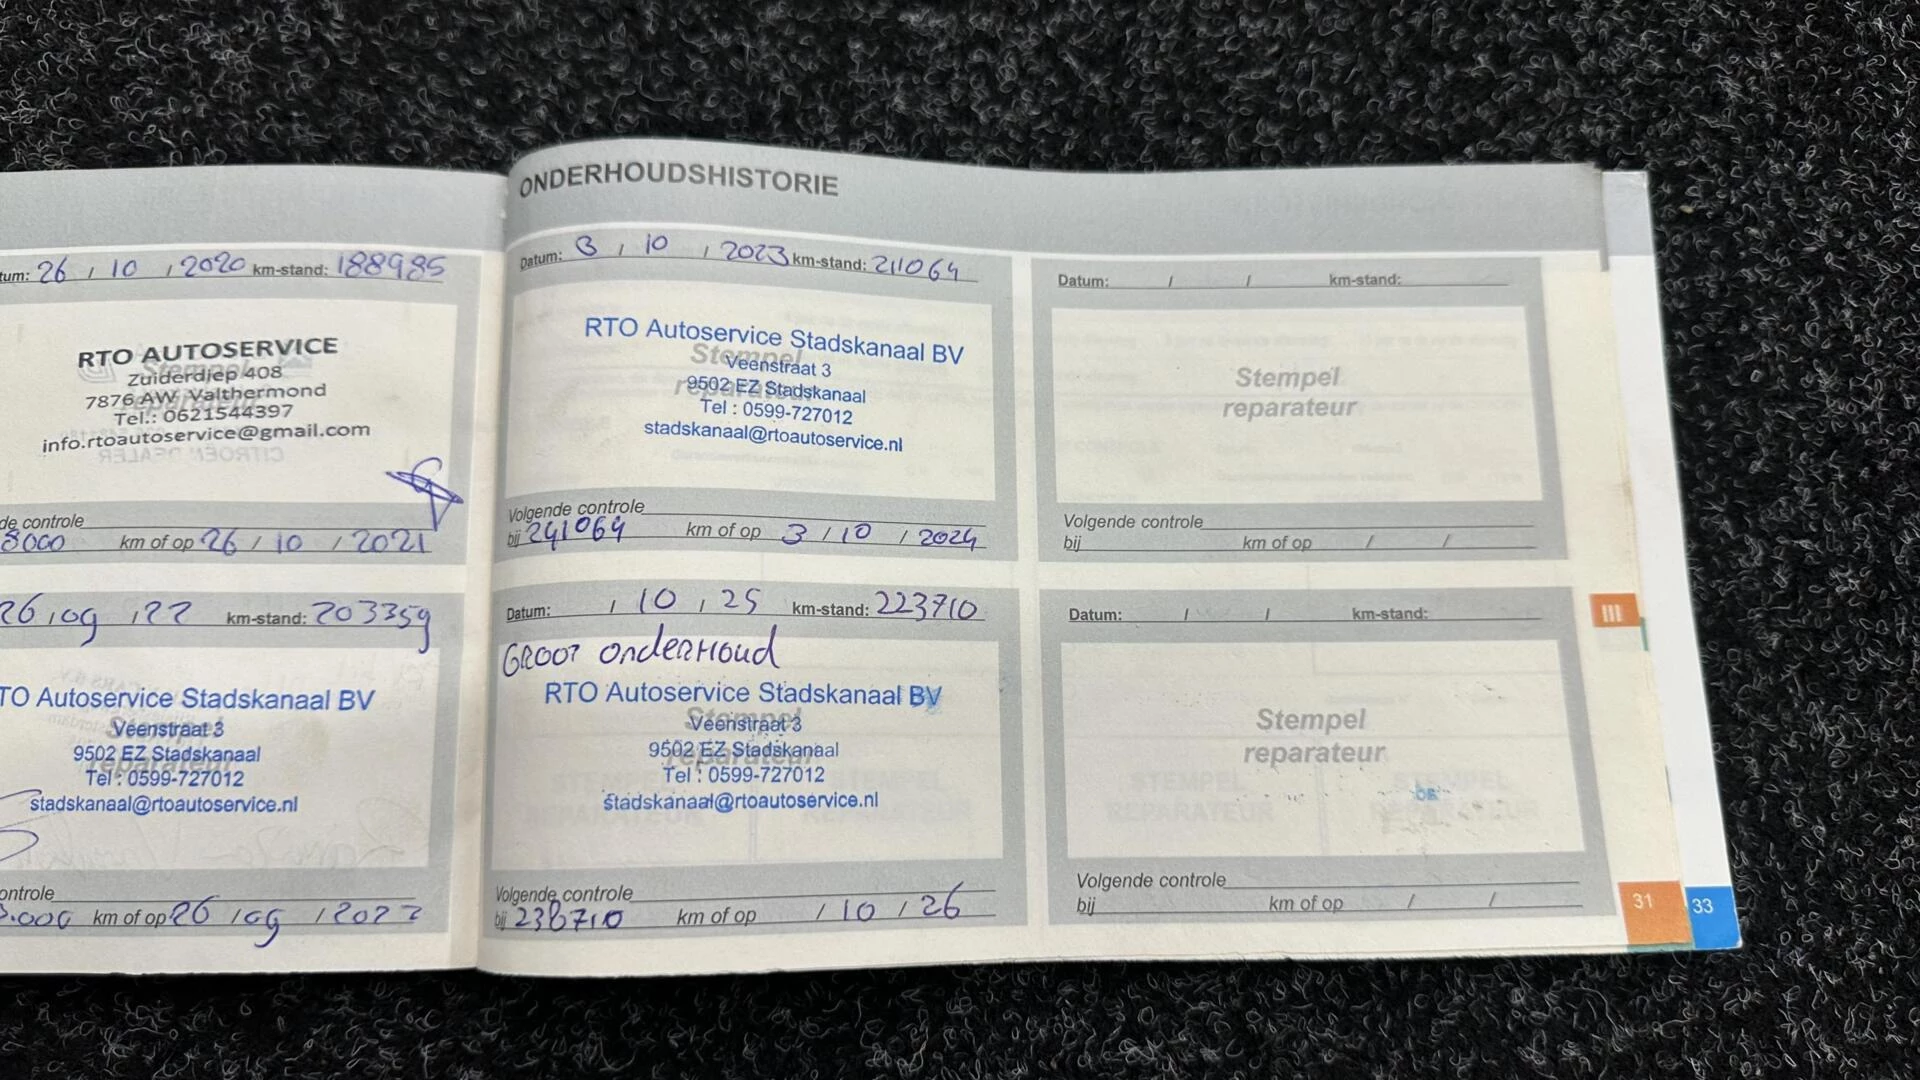 tum: 26 / 10 / 2020 km-stand: 188985
RTO AUTOSERVICE
Zuiderdiep 408
7876 AW Valthermond
Tel.: 0621544397
info.rtoautoservice@gmail.com
de controle
8000 km of op 26 / 10 / 2021
26 / 09 / 22 km-stand: 203359
TO Autoservice Stadskanaal BV
Veenstraat 3
9502 EZ Stadskanaal
Tel : 0599-727012
stadskanaal@rtoautoservice.nl
ontrole
.000 km of op 26 / 09 / 2023
ONDERHOUDSHISTORIE
Datum: 3 / 10 / 2023 km-stand: 211064
Stempel
reparateur
RTO Autoservice Stadskanaal BV
Veenstraat 3
9502 EZ Stadskanaal
Tel : 0599-727012
stadskanaal@rtoautoservice.nl
Volgende controle
bij 241064 km of op 3 / 10 / 2024
Datum: / 10 / 25 km-stand: 223710
GROOT ONDERHOUD
Stempel
reparateur
RTO Autoservice Stadskanaal BV
Veenstraat 3
9502 EZ Stadskanaal
Tel : 0599-727012
stadskanaal@rtoautoservice.nl
Volgende controle
bij 238710 km of op / 10 / 26
Datum: / / km-stand:
Stempel
reparateur
Volgende controle
bij km of op / /
Datum: / / km-stand:
Stempel
reparateur
Volgende controle
bij km of op / /
III
31
33